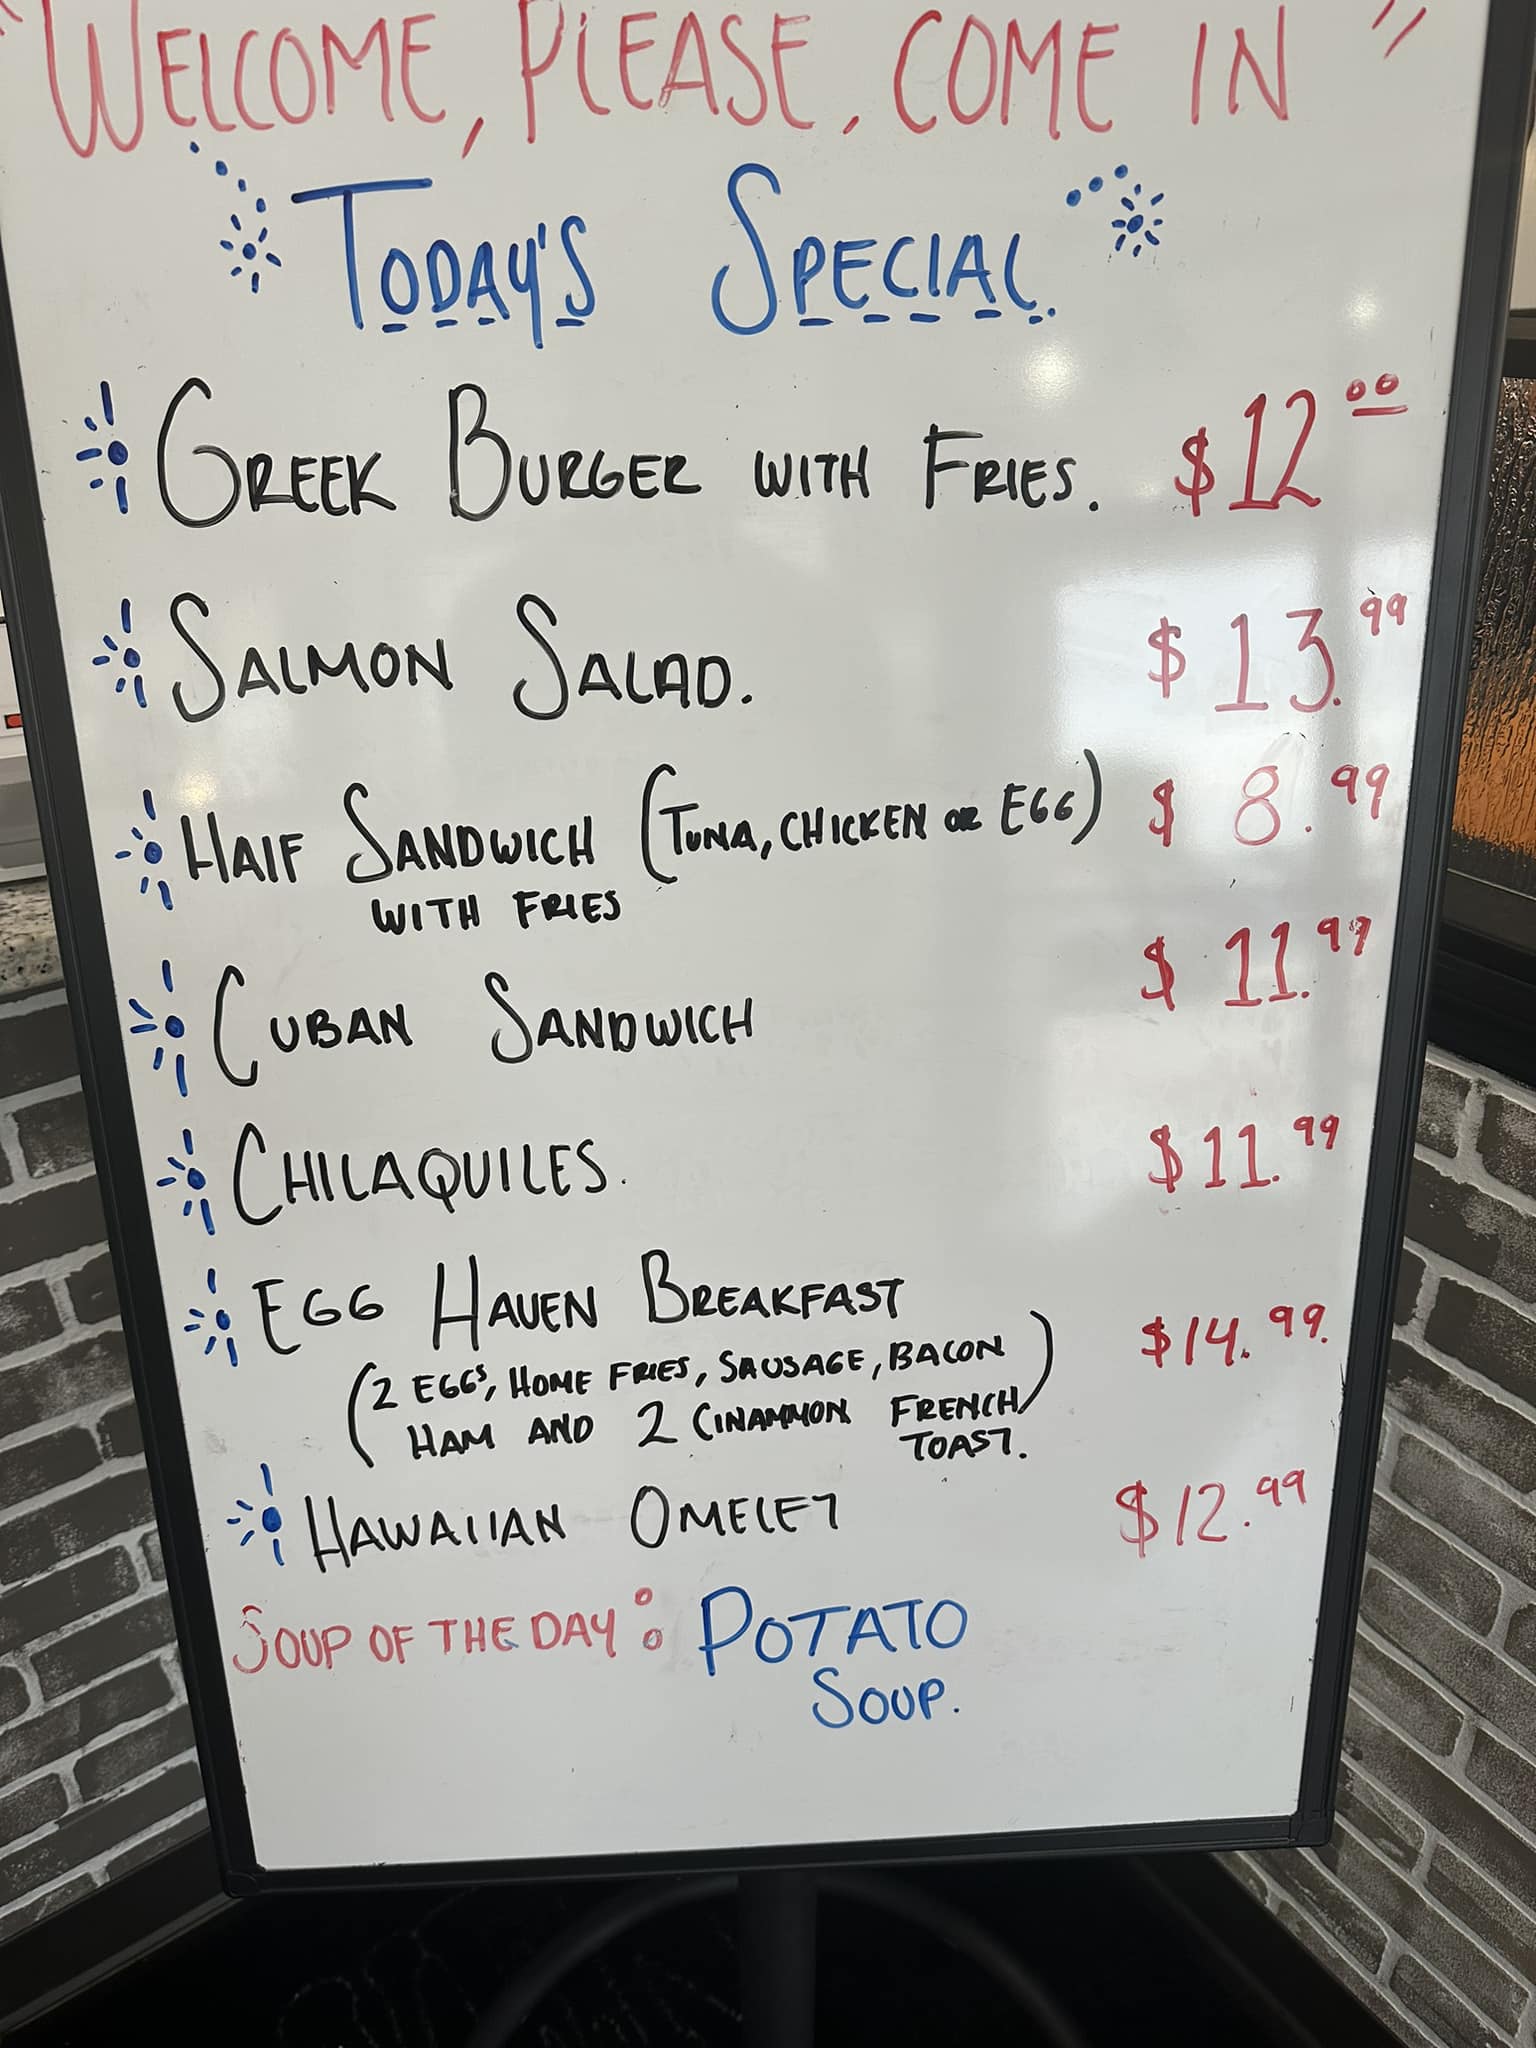 "WELCOME, PLEASE, COME IN"
TODAY'S SPECIAL.
GREEK BURGER WITH FRIES. $12⁰⁰
SALMON SALAD. $13.⁹⁹
HALF SANDWICH (TUNA, CHICKEN OR EGG) $8.⁹⁹
WITH FRIES
CUBAN SANDWICH $11.⁹⁹
CHILAQUILES. $11.⁹⁹
EGG HAVEN BREAKFAST $14.⁹⁹.
(2 EGGS, HOME FRIES, SAUSAGE, BACON
HAM AND 2 CINAMMON FRENCH)
TOAST.
HAWAIIAN OMELET $12.⁹⁹
SOUP OF THE DAY: POTATO
SOUP.